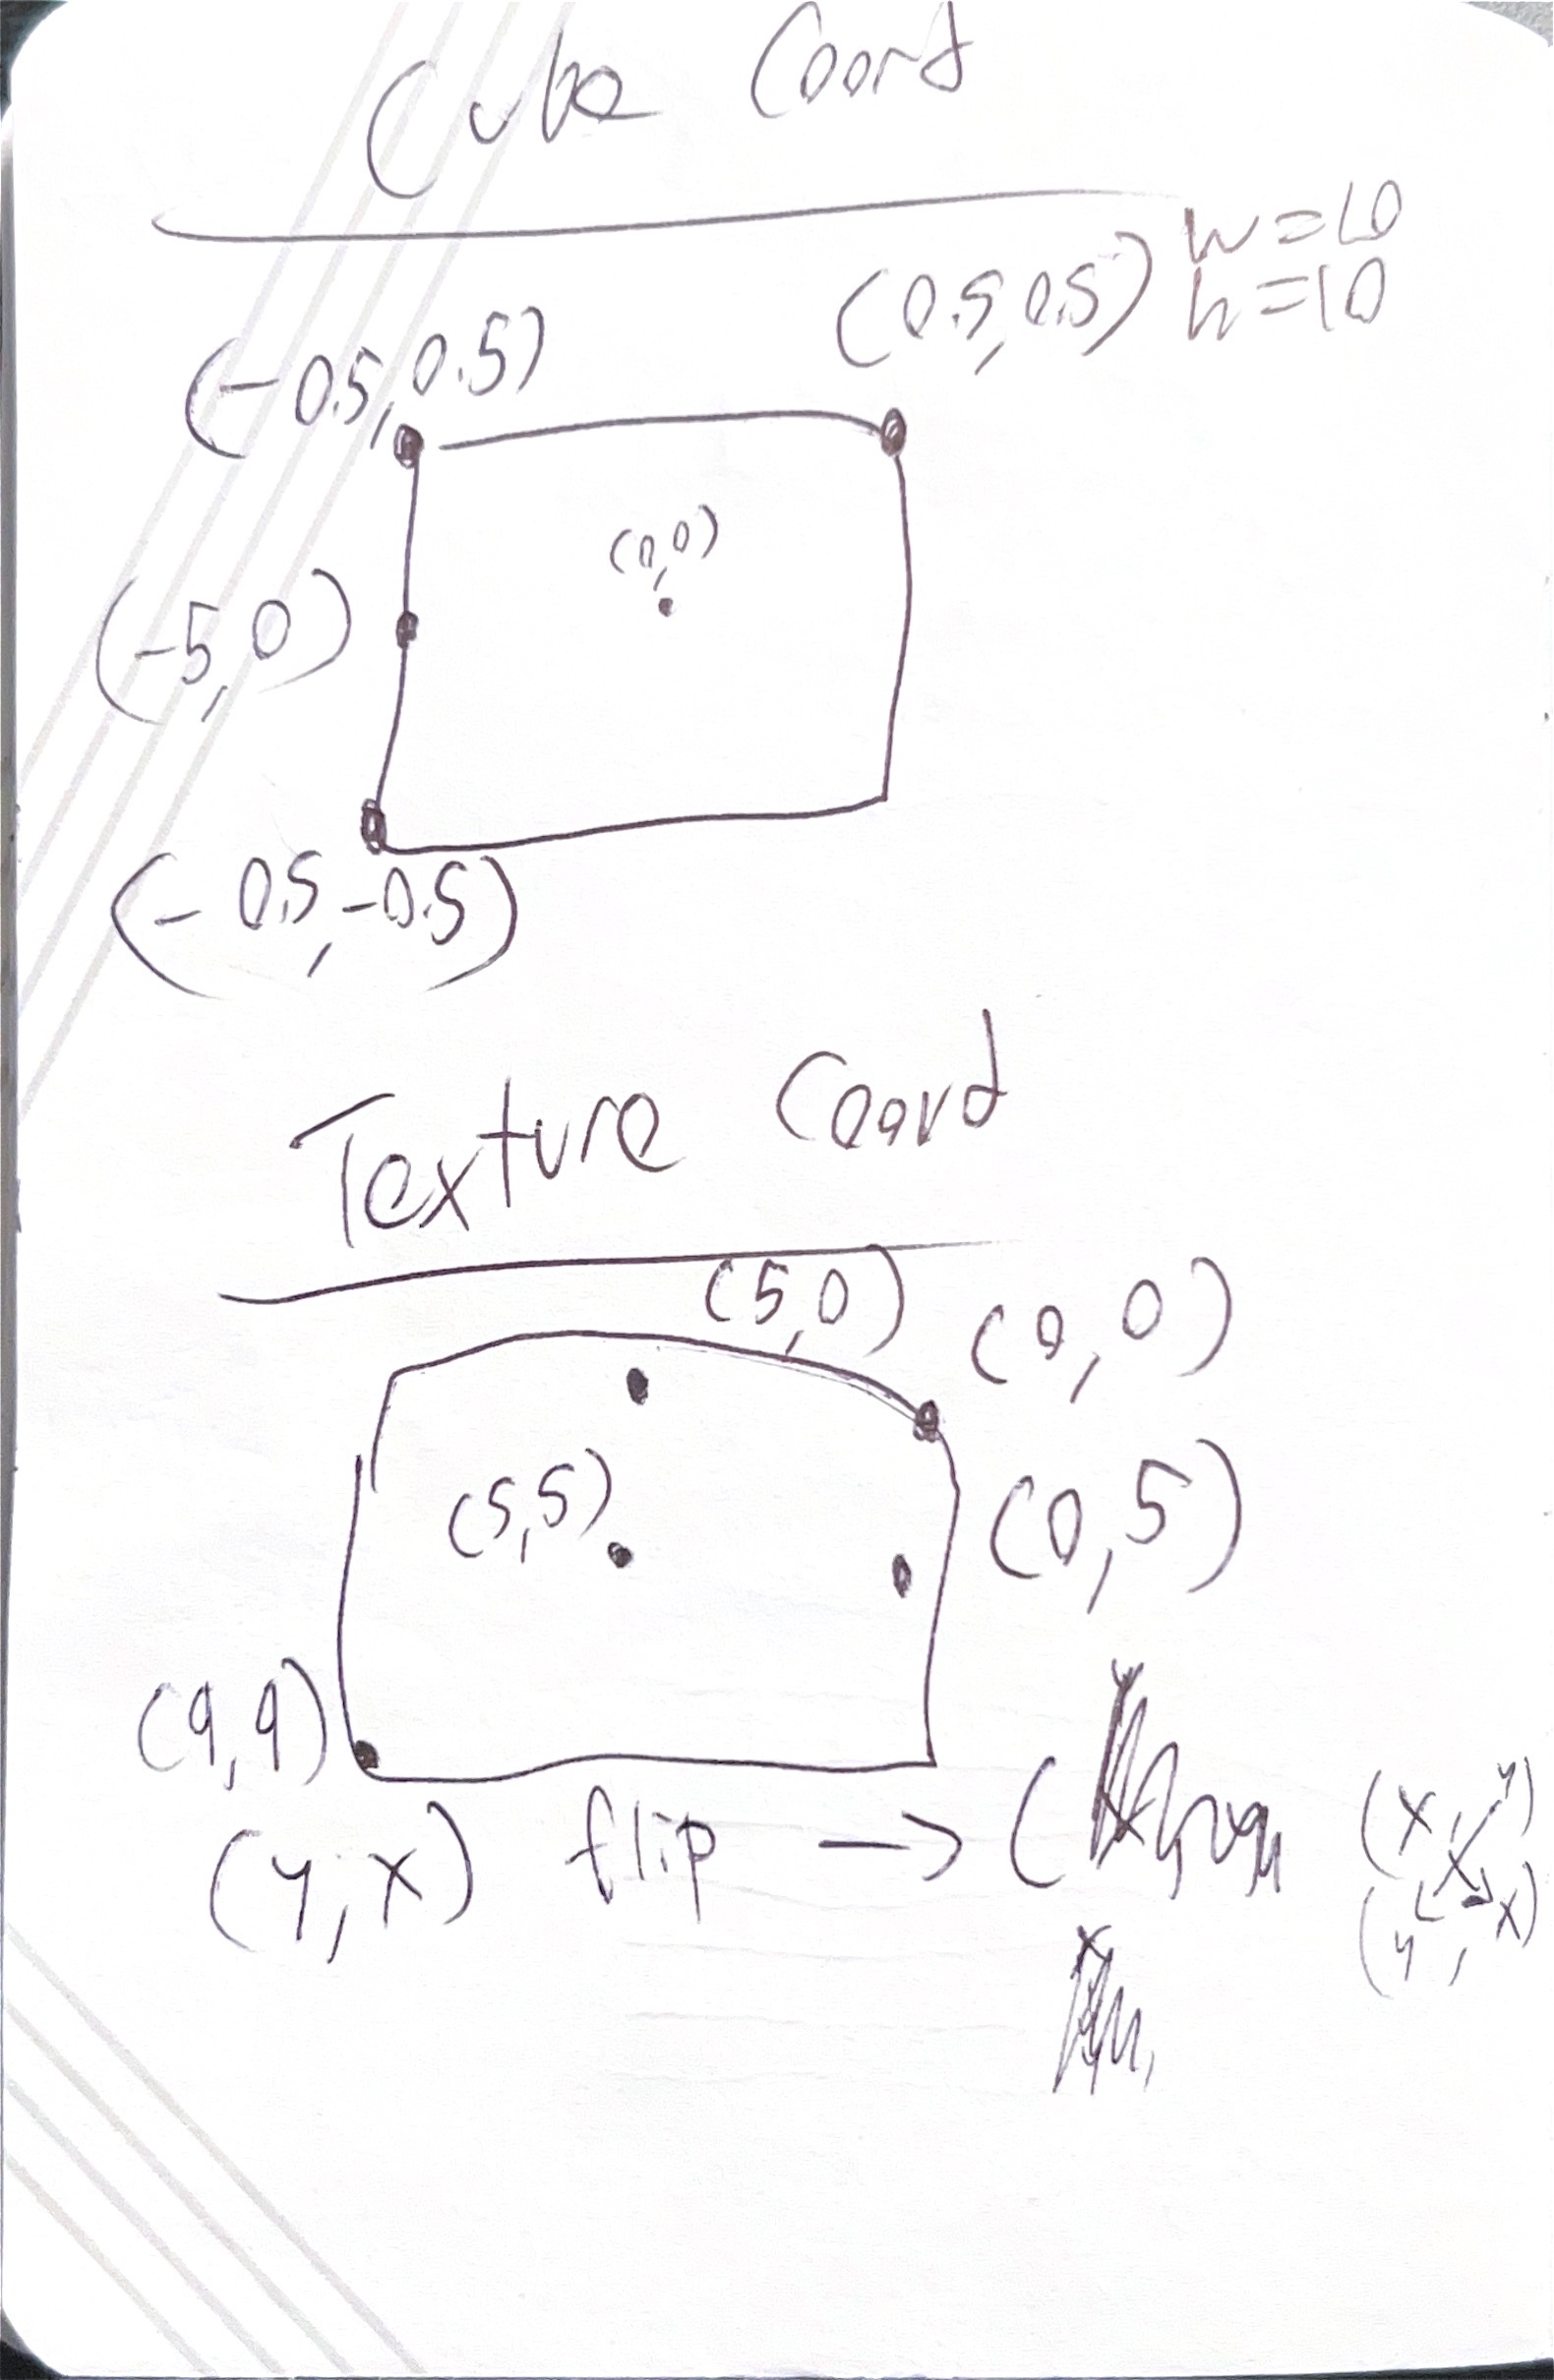 Cube Coord
w=10
h=10
(0.5,0.5)
(-0.5,0.5)
(0,0)
(-5,0)
(-0.5,-0.5)
Texture Coord
(5,0) (0,0)
(5,5) (0,5)
(9,9)
(y,x) flip → (
(x,y)
(y,x)